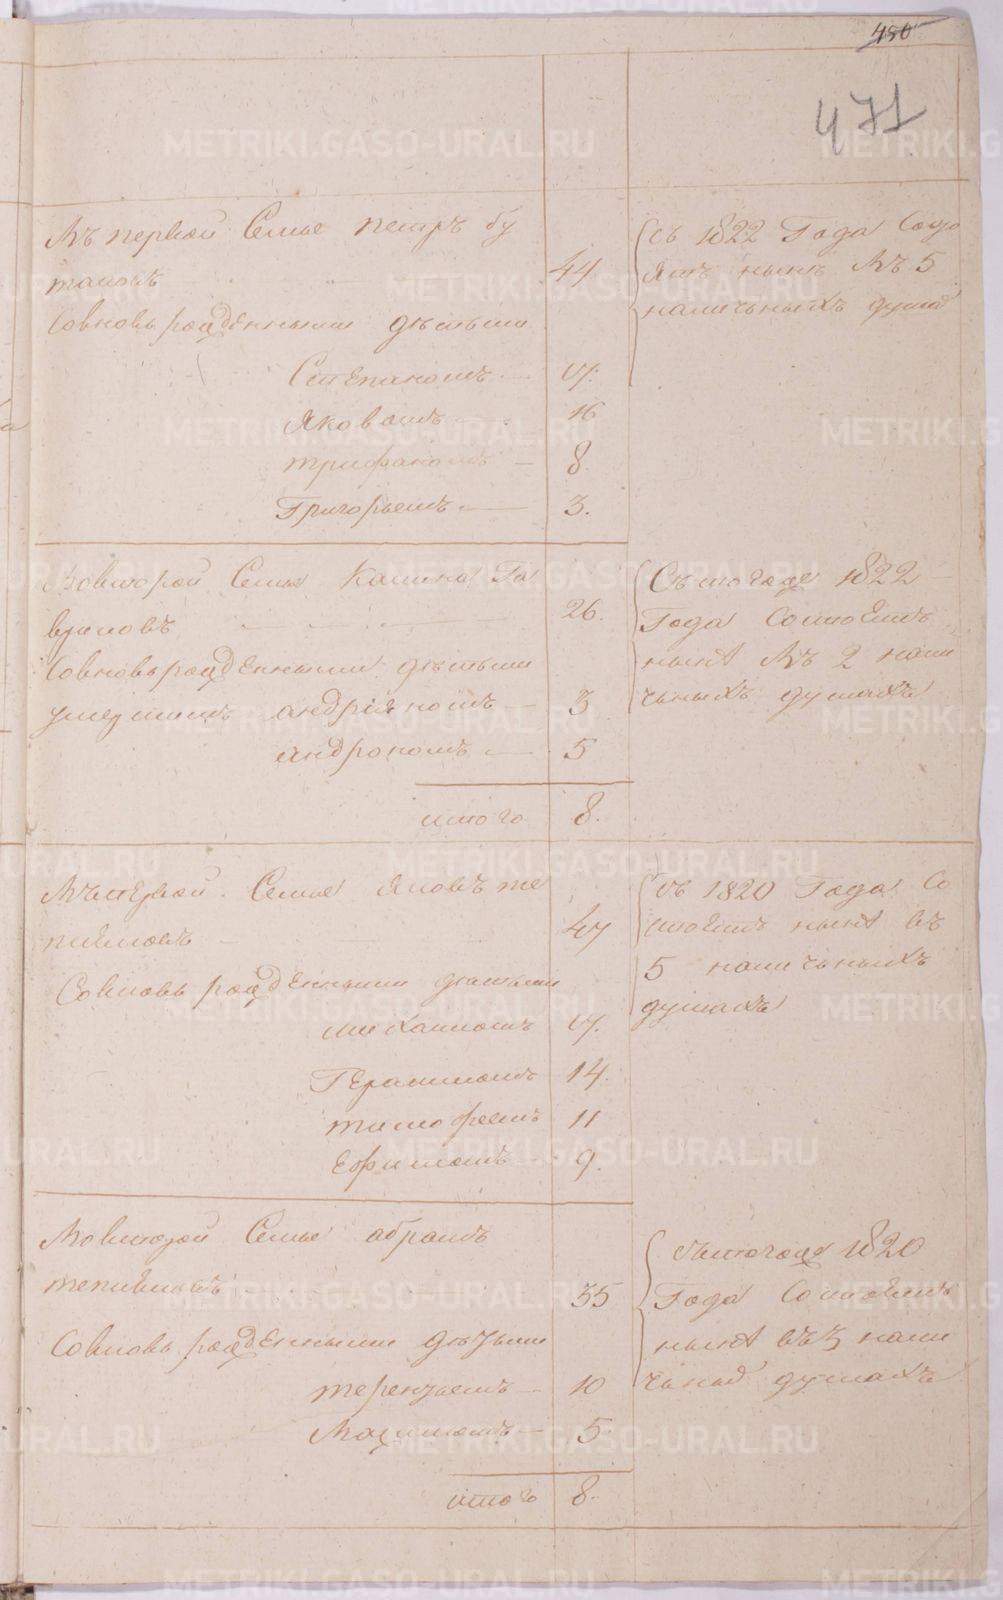 480
471
Въ первой Семье петръ бу
товъ 44
Совновь рожденными детьми
Степаномъ 17.
Яковомъ 16
трифаномъ 8
Григорьемъ 3.
Съ 1822 Года Состо
ятъ ныне въ 5
наличныхъ душахъ
Вовторой Семье Калина Га
вриловъ 26.
Совновь рожденными детьми
умершимъ андріяномъ 3
андрономъ 5
итого 8.
Стогоже 1822
Года Состоитъ
ныне въ 2 нали
чныхъ душахъ
Въпервой Семье Яковъ те
47
Совновь рожденными детьми
михаиломъ 17.
Герасимомъ 14.
тимофеемъ 11
Ефимомъ 9.
Съ 1820 Года Со
стоитъ ныне въ
5 наличныхъ
душахъ
Вовторой Семье абрамъ
35
Совновь рожденными детьми
терентьемъ 10
Максимомъ 5.
итого 8.
Стогоже 1820
Года Состоитъ
ныне въ 3 нали
чныхъ душахъ
METRIKI.GASO-URAL.RU